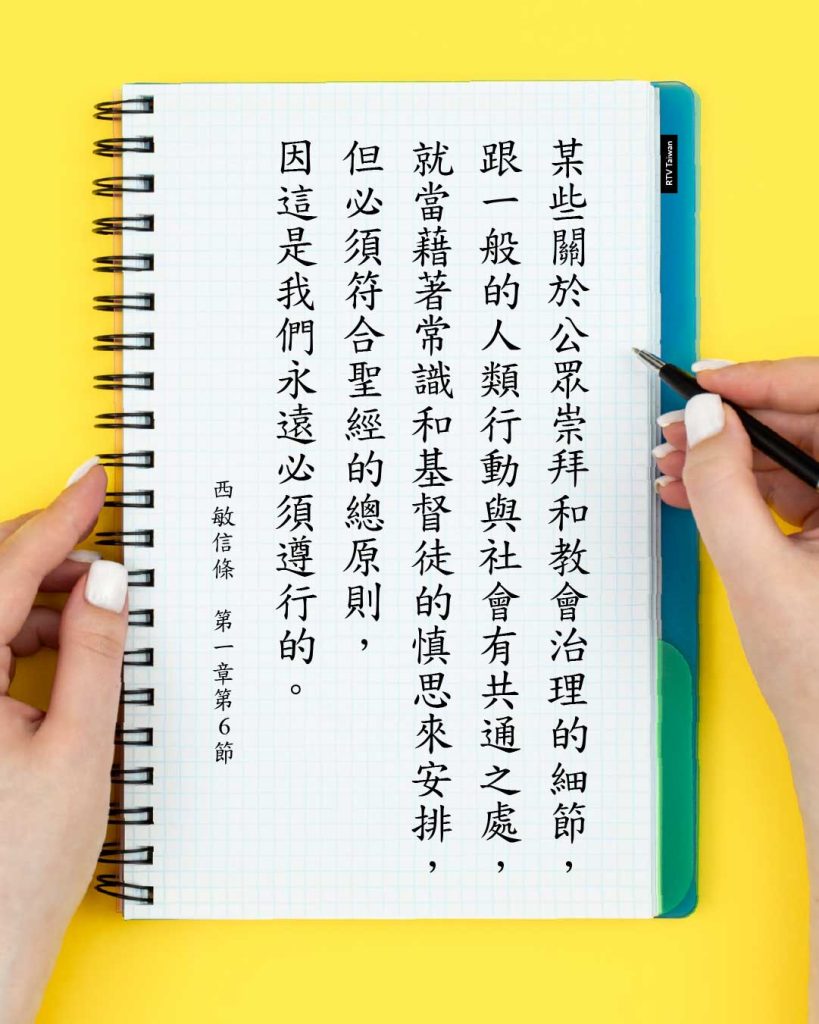 某些關於公眾崇拜和教會治理的細節，
跟一般的人類行動與社會有共通之處，
就當藉著常識和基督徒的慎思來安排，
但必須符合聖經的總原則，
因這是我們永遠必須遵行的。
西敏信條 第一章第6節
RTV Taiwan